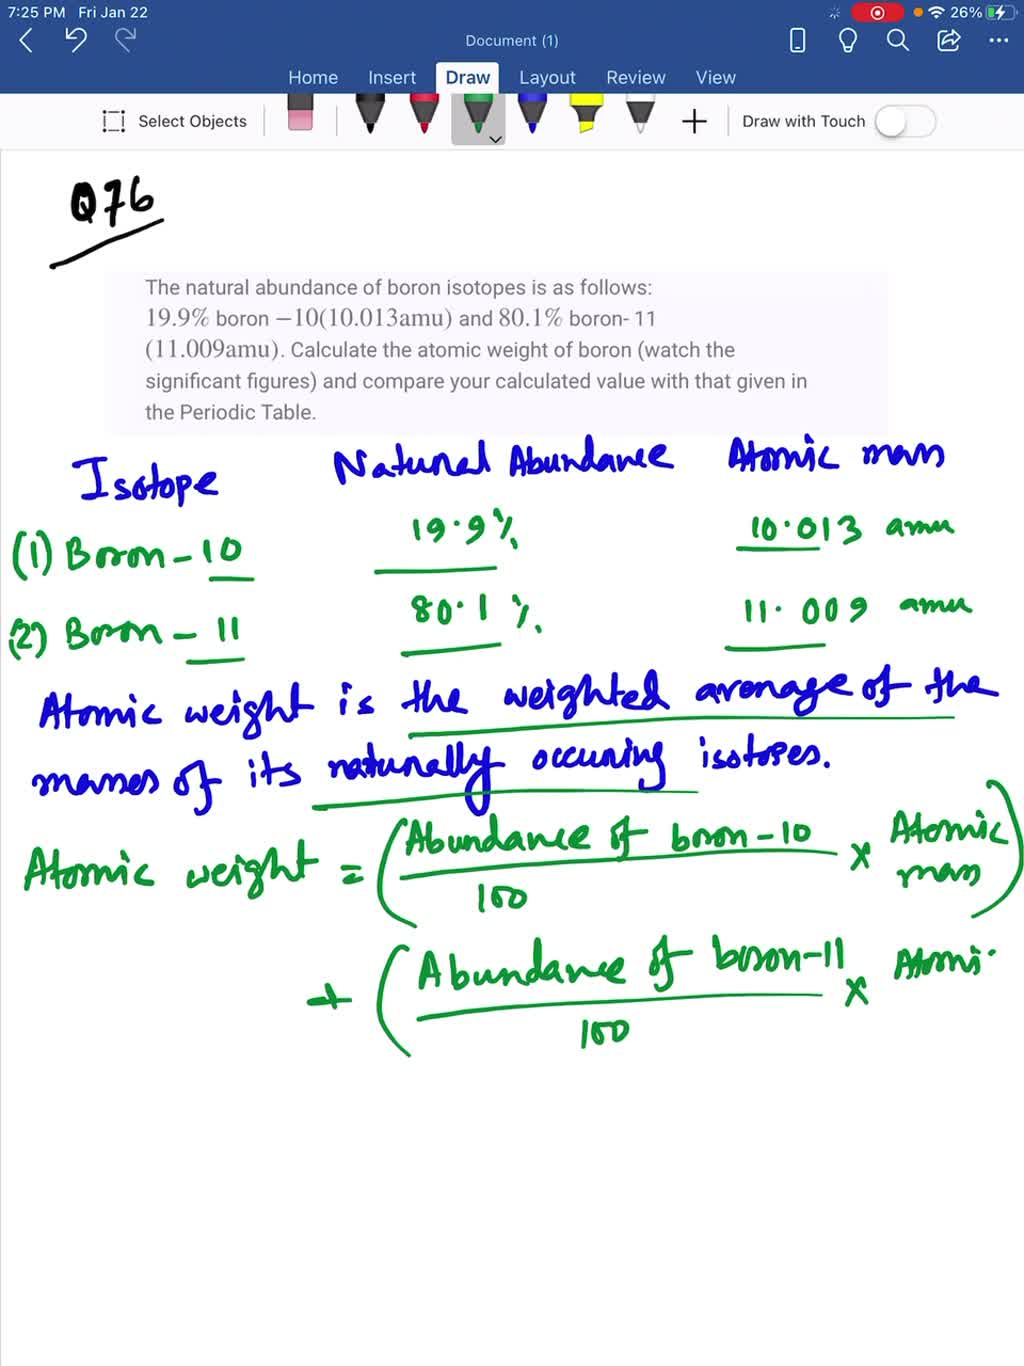 7:25 PM Fri Jan 22 26%
Document (1)
Home Insert Draw Layout Review View
Select Objects Draw with Touch
Q76
The natural abundance of boron isotopes is as follows:
19.9% boron −10(10.013amu) and 80.1% boron- 11
(11.009amu). Calculate the atomic weight of boron (watch the
significant figures) and compare your calculated value with that given in
the Periodic Table.
Isotope Natural Abundance Atomic mass
(1) Boron - 10 19.9% 10.013 amu
(2) Boron - 11 80.1 % 11.009 amu
Atomic weight is the weighted average of the
masses of its naturally occuring isotopes.
Atomic weight = (Abundance of boron-10 / 100 × Atomic mass)
+ (Abundance of boron-11 / 100 × Atomi